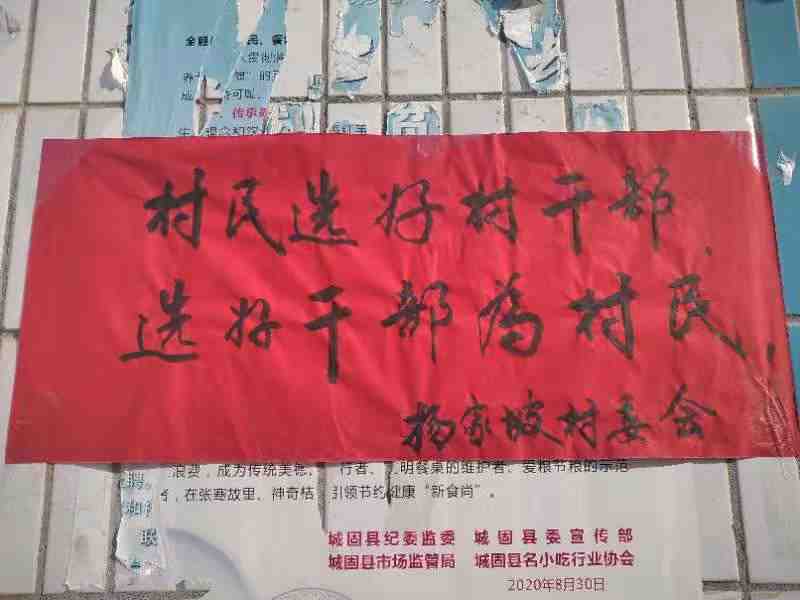 传承
村民选好村干部，
选好干部为村民，
杨家坡村委会
浪费，成为传统美德，
行者、
明餐桌的维护者、爱粮节粮的示范
，在张骞故里、神奇桔
引领节约健康“新食尚”。
城固县纪委监委 城固县委宣传部
城固县市场监管局 城固县名小吃行业协会
2020年8月30日